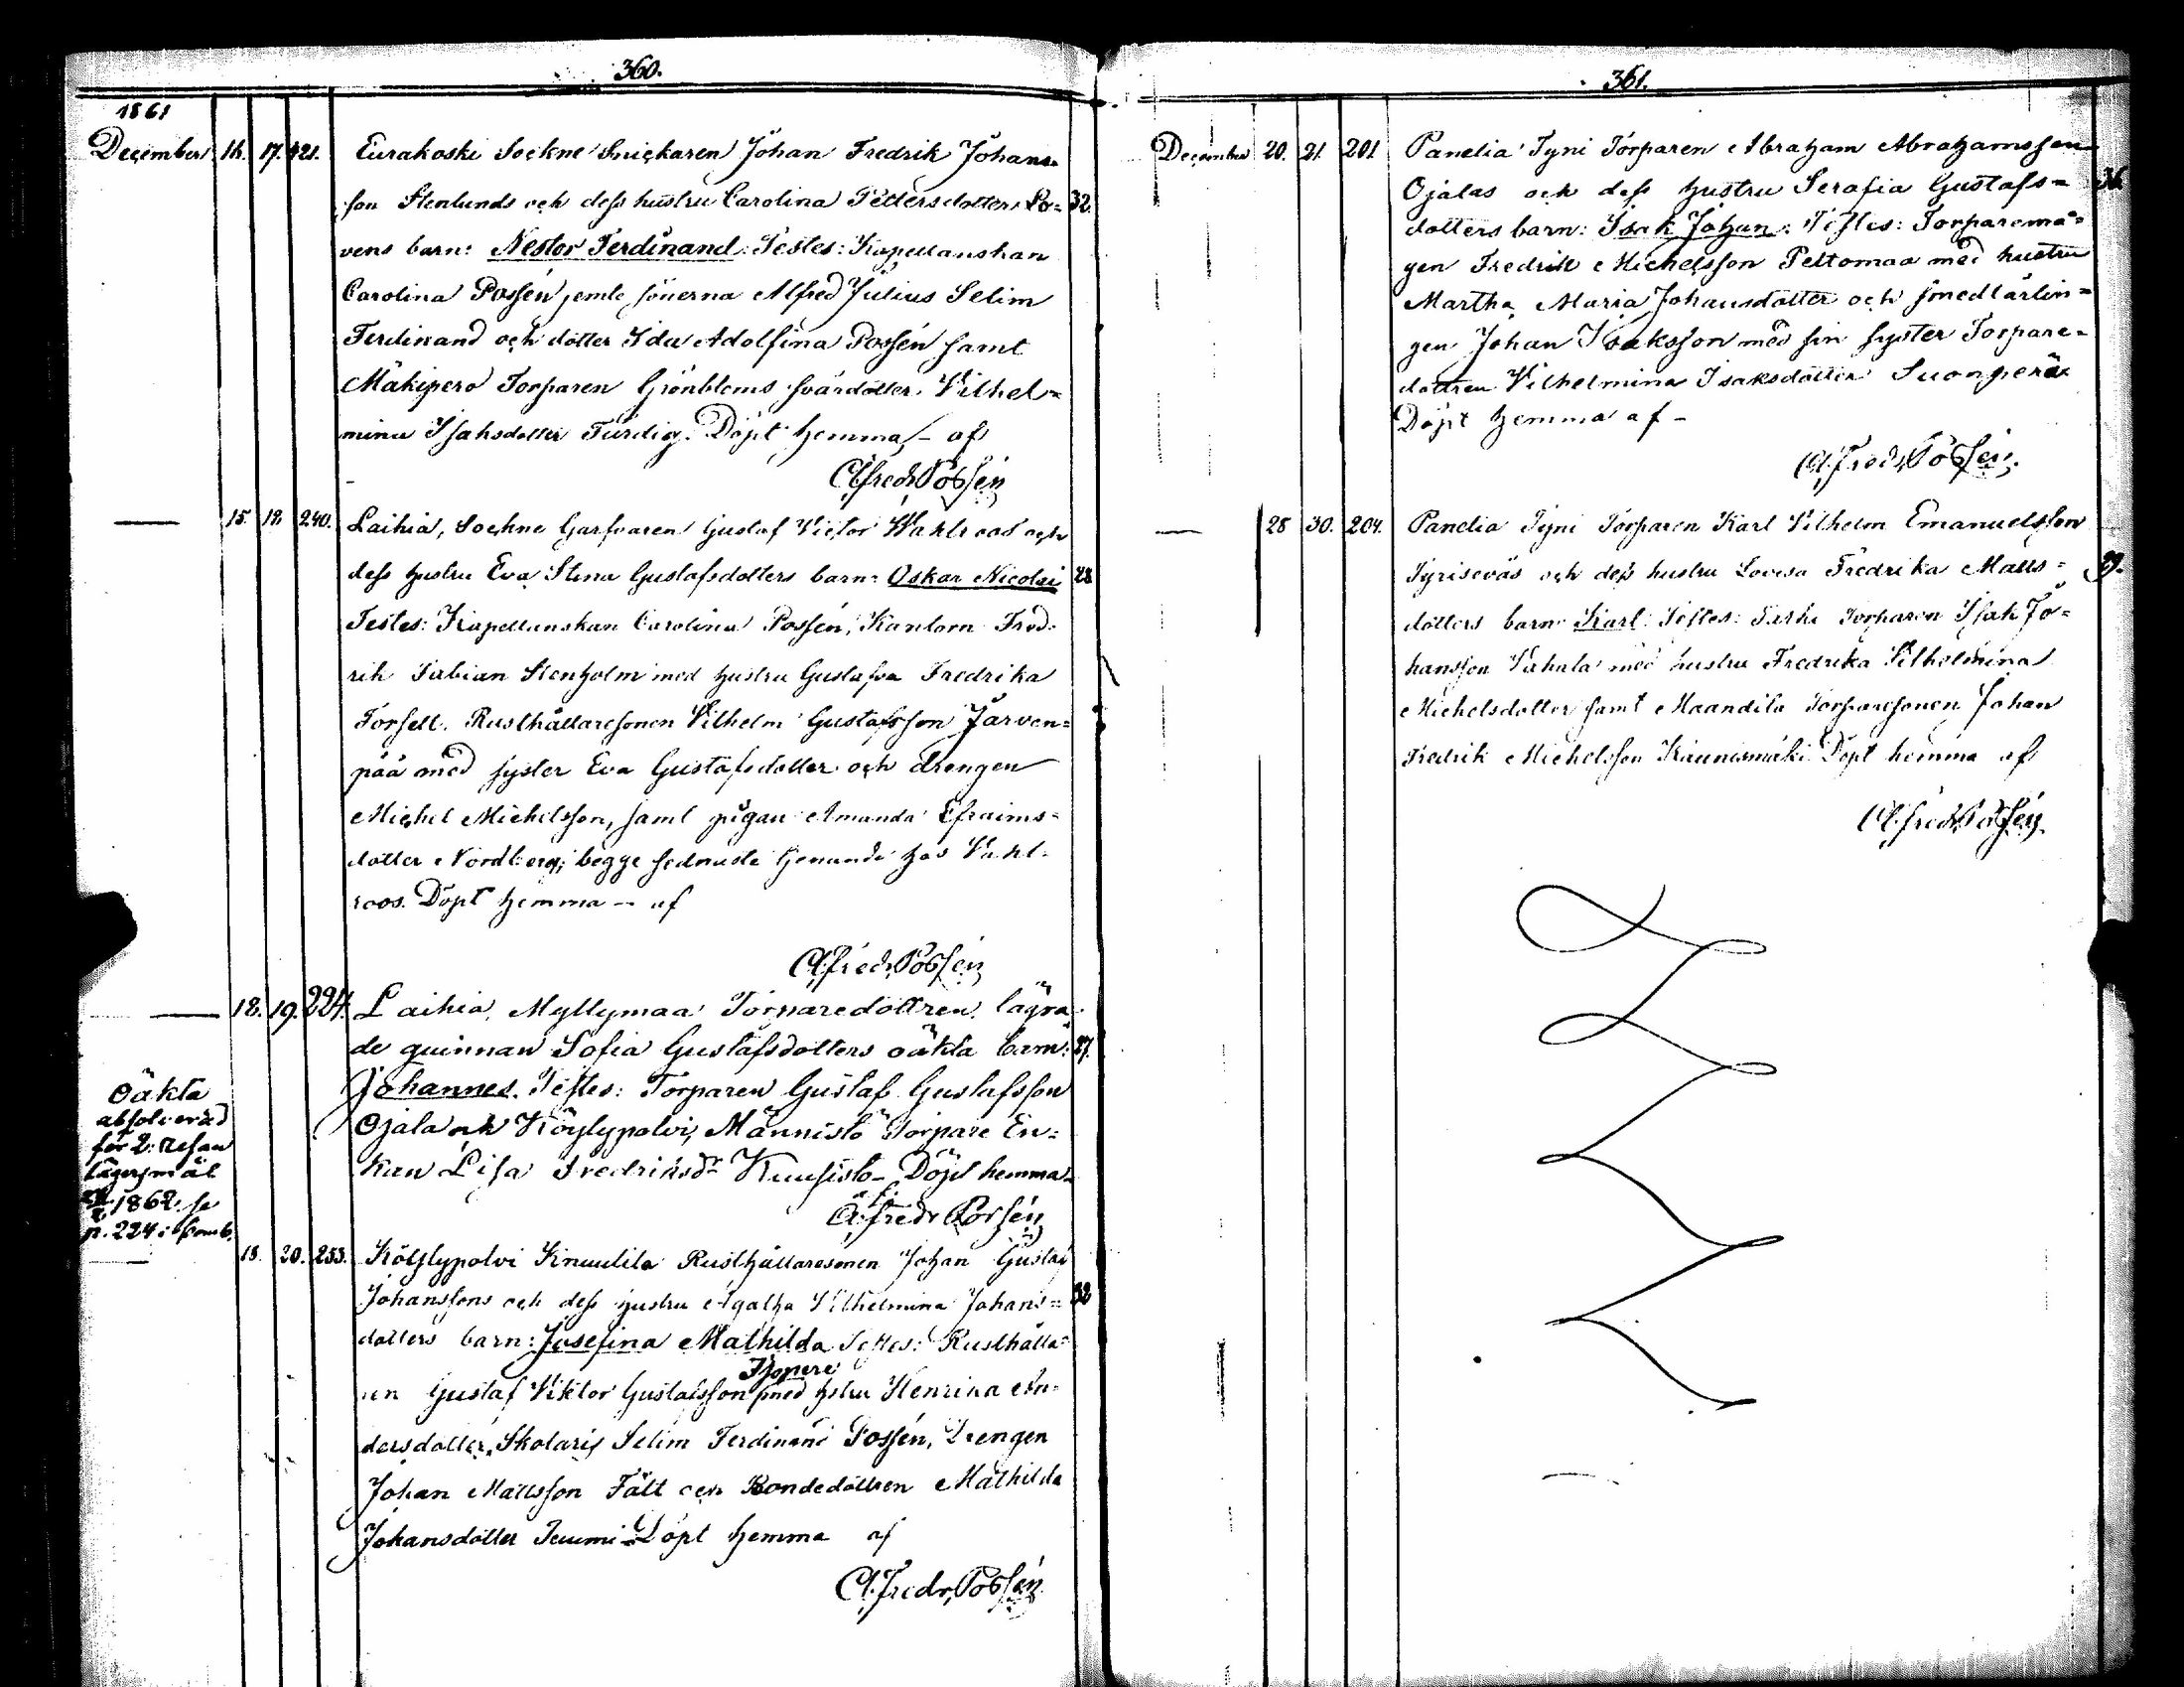 360.
1861
December 14. 17. 421. Eurakoski Sockne Snickaren Johan Fredrik Johans-
son Stenlunds och dess hustru Carolina Pettersdotter Lo= 32.
vens barn: Nestor Ferdinand. Testes: Kapellanskan
Carolina Possén jemte sönerna Alfred Julius Selim
Ferdinand och dotter Ida Adolfina Possén samt
Mäkiperö Torparen Grönbloms svärdotter Vilhel=
mina Isaksdotter Färdig. Döpt hemma, - af
A. Fredr. Possén
15. 18. 240. Laihia, Sockne Garfvaren Gustaf Victor Wahlroos och
dess hustru Eva Stina Gustafsdotters barn: Oskar Nicolai 28
Testes: Kapellanskan Carolina Possén, Kantorn Fred-
rik Fabian Stenholm med hustru Gustafva Fredrika
Forsell. Rusthållaresonen Vilhelm Gustafsson Järven=
pää med syster Eva Gustafsdotter och drengen
Michel Michelsson, samt pigan Amanda Efraims=
dotter Nordberg; begge sednaste hos Vahl-
roos. Döpt hemma - af
A. Fredr. Possén
18. 19. 224. Laihia, Myllymaa Torparedottren lägra-
de quinnan Sofia Gustafsdotters oäkta barn: 27.
Johannes. Testes: Torparen Gustaf Gustafsson
Ojala och Köylypolvi, Männistö Torpare En=
kan Lisa Fredriksdr Kuusisto - Döpt hemma
af
A. Fredr. Possén
Oäkta
absolverad
för 2: resan
lägersmål
1862. se
p. 224 i
18. 20. 253. Köylypolvi Knuutila Rusthållaresonen Johan Gustaf
Johanssons och dess hustru Agatha Vilhelmina Johans= 32
dotters barn: Josefina Mathilda Testes: Rusthålla=
ren Gustaf Viktor Gustafsson Isopere med hstru Henrika An-
dersdotter, Skolaris Selim Ferdinand Possén, Drengen
Johan Mattsson Fält och Bondedottren Mathilda
Johansdotter Tuumi - Döpt hemma af
A. Fredr. Possén
361.
December 20. 21. 201 Panelia Tyni Torparen Abraham Abrahamsson
Ojalas och dess hustru Serafia Gustafs= 36
dotters barn: Isak Johan. Testes: Torparemå=
gen Fredrik Michelsson Peltomaa med hustru
Martha Maria Johansdotter och smedlärlin=
gen Johan Isaksson med sin syster Torpare=
dottren Vilhelmina Isaksdotter Suonperä
Döpt hemma af -
A. Fredr. Possén.
28 30. 204. Panelia Tyni Torparen Karl Vilhelm Emanuelsson
Tyrisevas och dess hustru Lovisa Fredrika Matts= 29.
dotters barn: Karl. Testes: Torparen Isak Jo=
hansson Vahala med hustru Fredrika Vilhelmina
Michelsdotter samt Maandila Torparesonen Johan
Fredrik Michelsson Kaunismäki. Döpt hemma af
A. Fredr. Possén